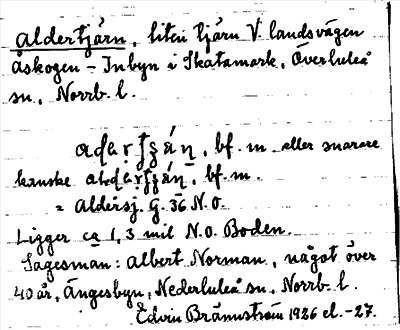 Aldertjärn, liten tjärn V. landsvägen
Åskogen - Inbyn i Skatamark, Överluleå
sn, Norrb. l.
bf. m. eller snarare
kanske bf. m.
= Aldersj. G. 36 N.O.
Ligger ca 1,3 mil N.O. Boden.
Sagesman: Albert Norman, något över
40 år, Ängesbyn, Nederluleå sn, Norrb. l.
Edvin Brännström 1926 el. -27.